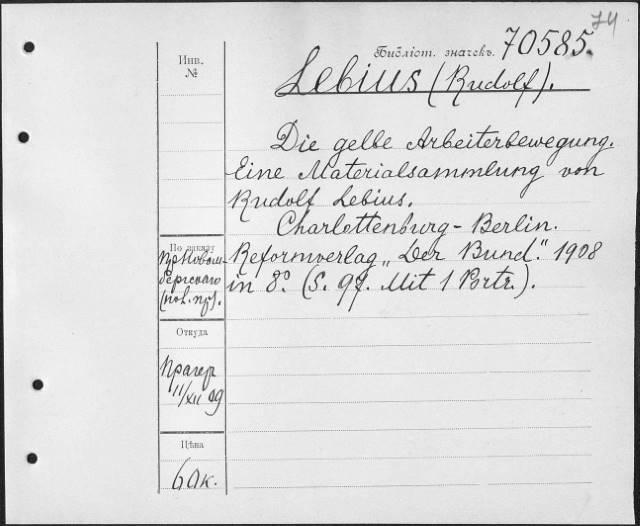 74
Библіот. значекъ. 70585.
Инв.
№
Lebius (Rudolf).
Die gelbe Arbeiterbewegung.
Eine Materialsammlung von
Rudolf Lebius.
Charlottenburg-Berlin.
Reformverlag „Der Bund“. 1908
in 8º. (S. 97. Mit 1 Portr.).
По заказу
Откуда
Прагер
11/XII 09
Цѣна